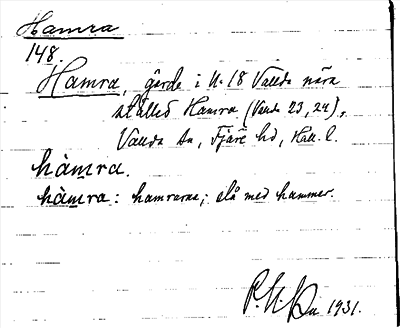 Hamra
148.
Hamra, gärde i N:18 Vallda nära
stället Hamra (Vallda 23, 24),
Vallda sn, Fjäre hd, Hall. l.
hàmra.
hàmra: hamrarna; slå med hammer.
1931.